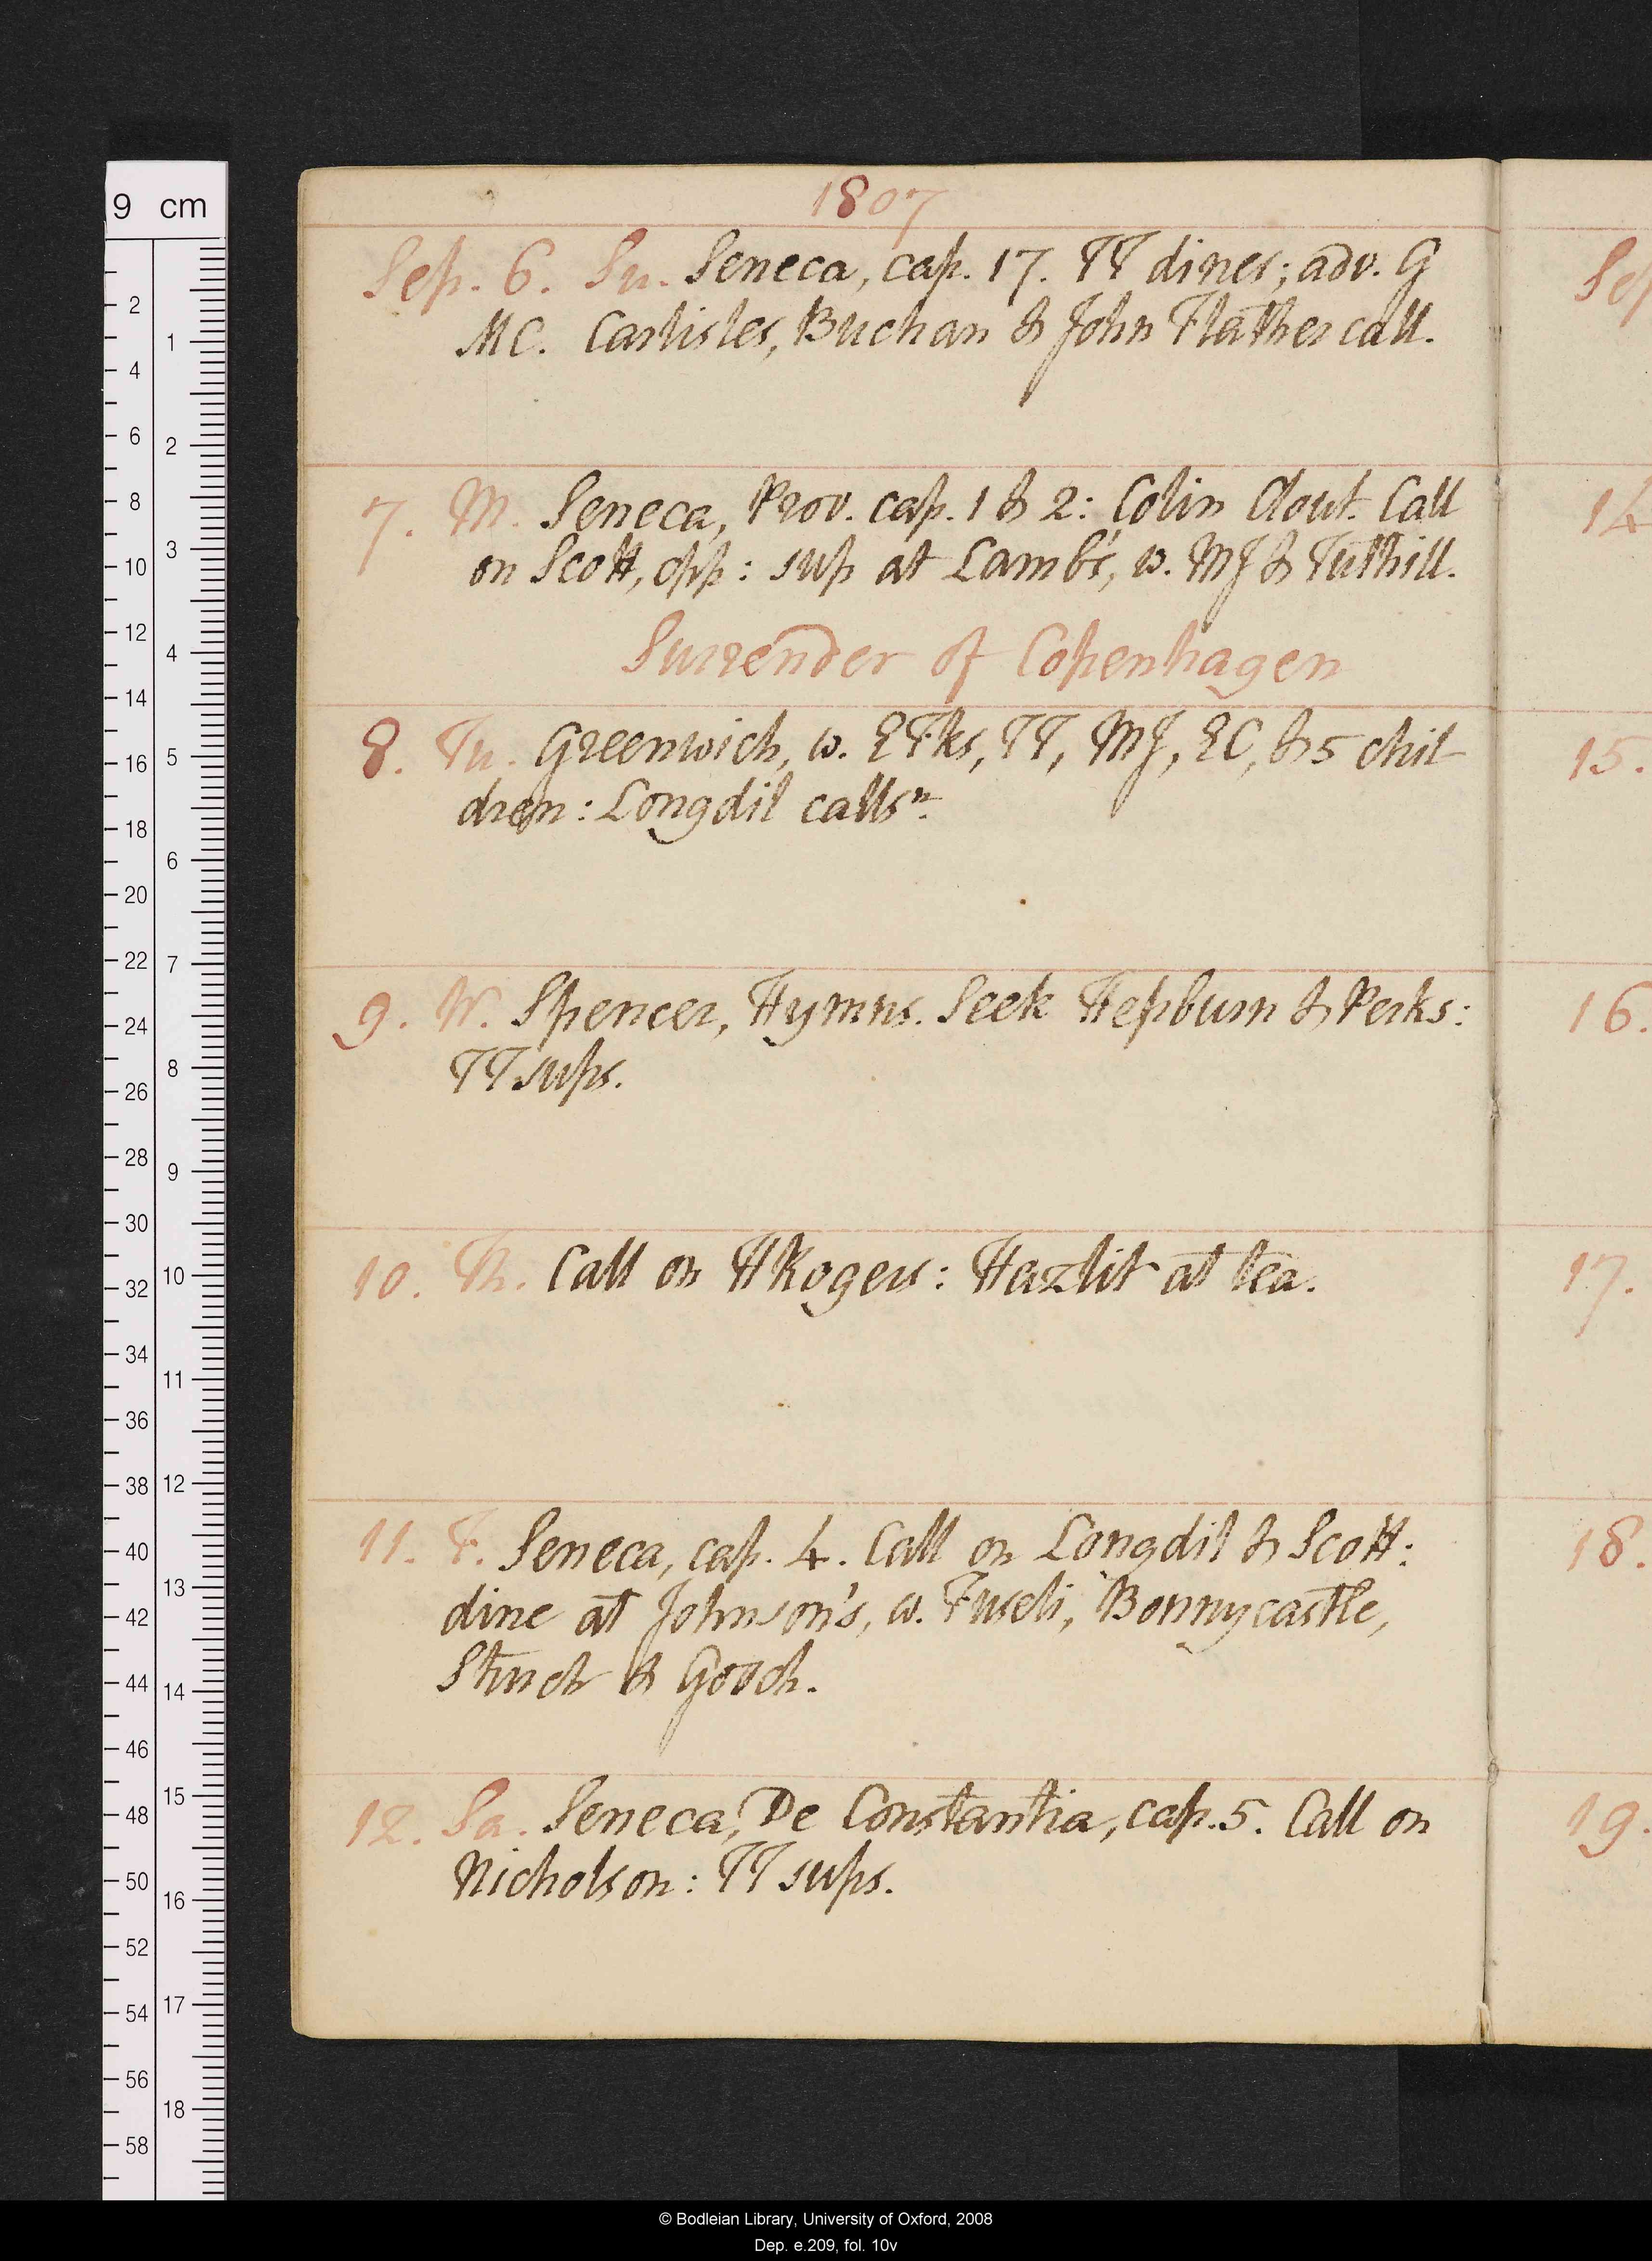 1807
Sep. 6. Su. Seneca, cap. 17. TT dines; adv. G
MC. Carlisles, Buchan & John Flather call.
7. M. Seneca, Prov. cap. 1 & 2: Colin Clout. Call
on Scott, opp: sup at Lamb's, w. MJ & Tuthill.
Surrender of Copenhagen
8. Tu. Greenwich, w. EFks, TT, MJ, EC, & 5 chil-
dren: Longdil calls n.
9. W. Spencer, Hymns. Seek Hepburn & Perks:
TT sups.
10. Th. Call on HRogers: Hazlit at tea.
11. F. Seneca, cap. 4. Call on Longdil & Scott:
dine at Johnson's, w. Fuseli, Bonnycastle,
Struch & Gooch.
12. Sa. Seneca, De Constantia, cap. 5. Call on
Nicholson: TT sups.
Sep
14
15.
16.
17.
18.
19.
9 cm
2
4
6
8
10
12
14
16
18
20
22
24
26
28
30
32
34
36
38
40
42
44
46
48
50
52
54
56
58
1
2
3
4
5
6
7
8
9
10
11
12
13
14
15
16
17
18
© Bodleian Library, University of Oxford, 2008
Dep. e.209, fol. 10v